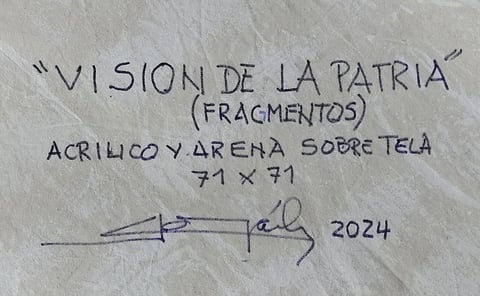 "VISION DE LA PATRIA"
(FRAGMENTOS)
ACRILICO Y ARENA SOBRE TELA
71 X 71
2024